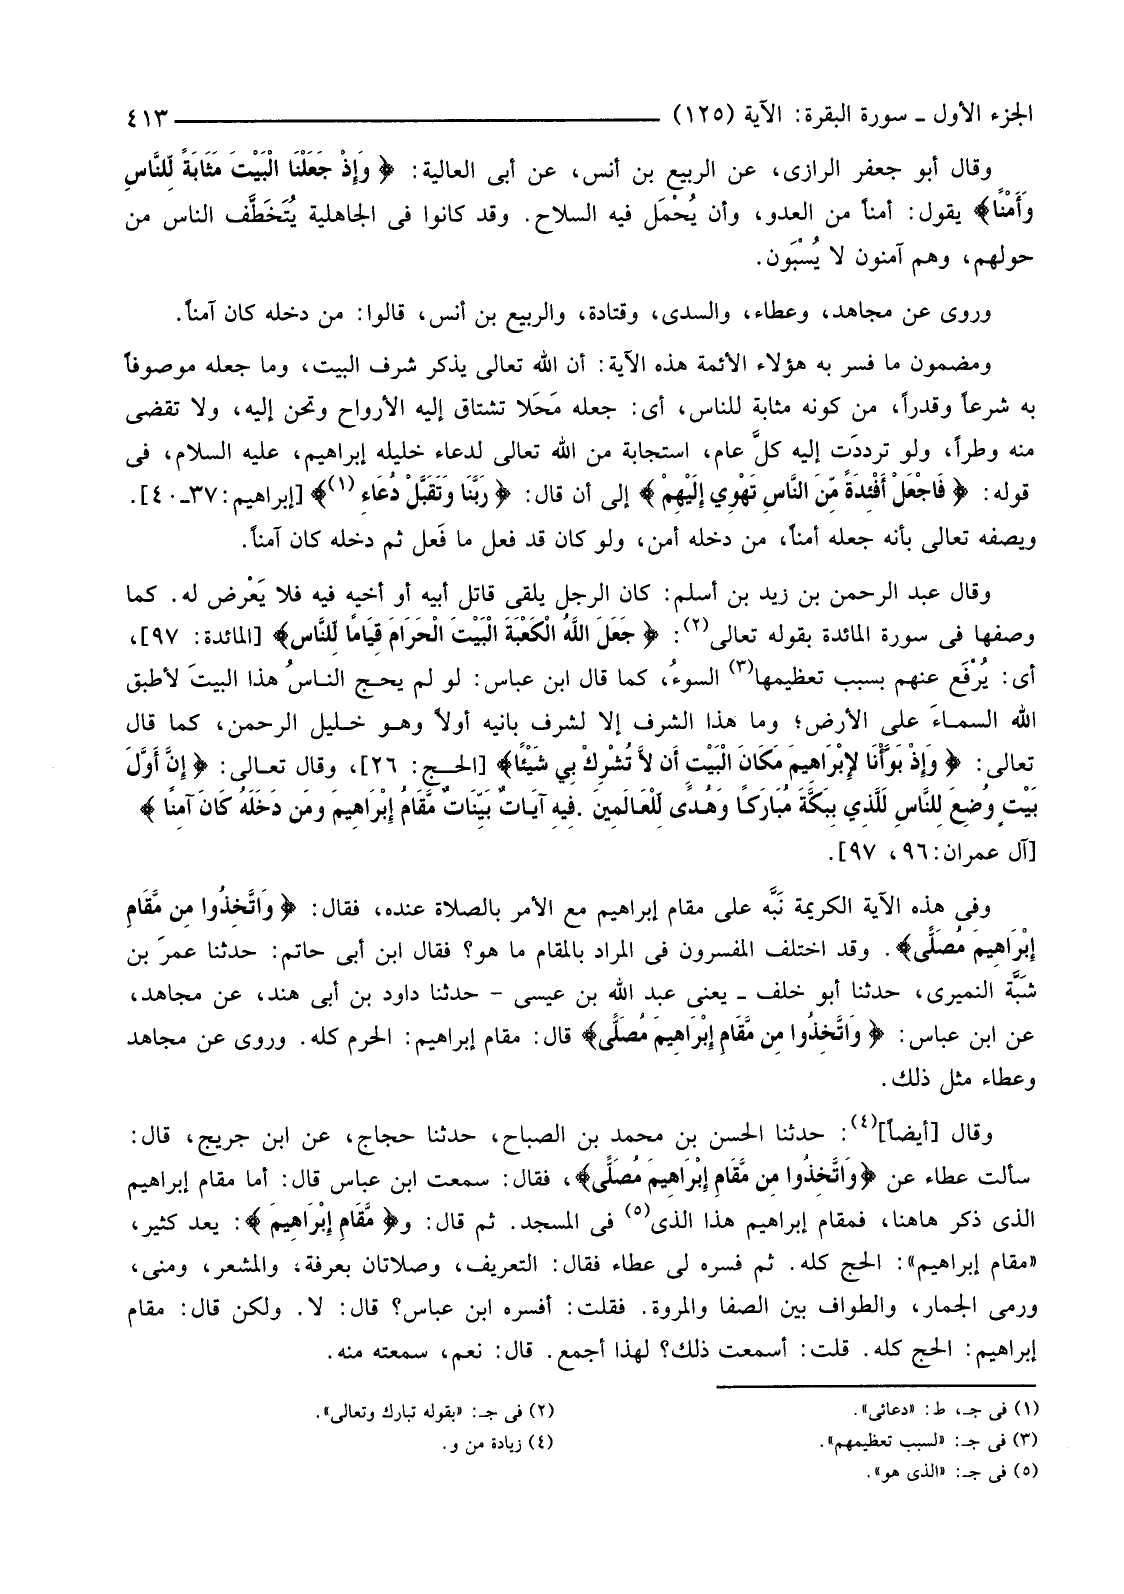 الجزء الأول ـ سورة البقرة: الآية (١٢٥) ٤١٣
وقال أبو جعفر الرازى، عن الربيع بن أنس، عن أبى العالية: ﴿ وَإِذْ جَعَلْنَا الْبَيْتَ مَثَابَةً لِّلنَّاسِ
وَأَمْنًا﴾ يقول: أمناً من العدو، وأن يُحْمَل فيه السلاح. وقد كانوا فى الجاهلية يُتَخَطَّف الناس من
حولهم، وهم آمنون لا يُسْبَون.
وروى عن مجاهد، وعطاء، والسدى، وقتادة، والربيع بن أنس، قالوا: من دخله كان آمناً.
ومضمون ما فسر به هؤلاء الأئمة هذه الآية: أن الله تعالى يذكر شرف البيت، وما جعله موصوفاً
به شرعاً وقدراً، من كونه مثابة للناس، أى: جعله مَحَلا تشتاق إليه الأرواح وتحن إليه، ولا تقضى
منه وطراً، ولو ترددَت إليه كلَّ عام، استجابة من الله تعالى لدعاء خليله إبراهيم، عليه السلام، فى
قوله: ﴿ فَاجْعَلْ أَفْئِدَةً مِّنَ النَّاسِ تَهْوِي إِلَيْهِمْ ﴾ إلى أن قال: ﴿ رَبَّنَا وَتَقَبَّلْ دُعَاءِ (١)﴾ [إبراهيم:٣٧ـ٤٠].
ويصفه تعالى بأنه جعله أمناً، من دخله أمن، ولو كان قد فعل ما فَعل ثم دخله كان آمناً.
وقال عبد الرحمن بن زيد بن أسلم: كان الرجل يلقى قاتل أبيه أو أخيه فيه فلا يَعْرض له. كما
وصفها فى سورة المائدة بقوله تعالى(٢): ﴿ جَعَلَ اللَّهُ الْكَعْبَةَ الْبَيْتَ الْحَرَامَ قِيَامًا لِّلنَّاسِ﴾ [المائدة: ٩٧]،
أى: يُرْفَع عنهم بسبب تعظيمها(٣) السوءُ، كما قال ابن عباس: لو لم يحج الناسُ هذا البيتَ لأطبق
الله السماءَ على الأرض؛ وما هذا الشرف إلا لشرف بانيه أولاً وهو خليل الرحمن، كما قال
تعالى: ﴿ وَإِذْ بَوَّأْنَا لإِبْرَاهِيمَ مَكَانَ الْبَيْتِ أَن لاَّ تُشْرِكْ بِي شَيْئًا﴾ [الحج: ٢٦]، وقال تعالى: ﴿ إِنَّ أَوَّلَ
بَيْتٍ وُضِعَ لِلنَّاسِ لَلَّذِي بِبَكَّةَ مُبَارَكًا وَهُدًى لِّلْعَالَمِينَ . فِيهِ آيَاتٌ بَيِّنَاتٌ مَّقَامُ إِبْرَاهِيمَ وَمَن دَخَلَهُ كَانَ آمِنًا ﴾
[آل عمران:٩٦، ٩٧].
وفى هذه الآية الكريمة نَبَّه على مقام إبراهيم مع الأمر بالصلاة عنده، فقال: ﴿ وَاتَّخِذُوا مِن مَّقَامِ
إِبْرَاهِيمَ مُصَلًّى﴾. وقد اختلف المفسرون فى المراد بالمقام ما هو؟ فقال ابن أبى حاتم: حدثنا عمرَ بن
شَبَّة النميرى، حدثنا أبو خلف ـ يعنى عبد الله بن عيسى - حدثنا داود بن أبى هند، عن مجاهد،
عن ابن عباس: ﴿ وَاتَّخِذُوا مِن مَّقَامِ إِبْرَاهِيمَ مُصَلًّى﴾ قال: مقام إبراهيم: الحرم كله. وروى عن مجاهد
وعطاء مثل ذلك.
وقال [أيضاً](٤): حدثنا الحسن بن محمد بن الصباح، حدثنا حجاج، عن ابن جريج، قال:
سألت عطاء عن ﴿وَاتَّخِذُوا مِن مَّقَامِ إِبْرَاهِيمَ مُصَلًّى﴾، فقال: سمعت ابن عباس قال: أما مقام إبراهيم
الذى ذكر هاهنا، فمقام إبراهيم هذا الذى(٥) فى المسجد. ثم قال: و﴿ مَّقَامِ إِبْرَاهِيمَ ﴾: يعد كثير،
«مقام إبراهيم»: الحج كله. ثم فسره لى عطاء فقال: التعريف، وصلاتان بعرفة، والمشعر، ومنى،
ورمى الجمار، والطواف بين الصفا والمروة. فقلت: أفسره ابن عباس؟ قال: لا. ولكن قال: مقام
إبراهيم: الحج كله. قلت: أسمعت ذلك؟ لهذا أجمع. قال: نعم، سمعته منه.
(١) فى جـ، ط: «دعائى».
(٢) فى جـ: «بقوله تبارك وتعالى».
(٣) فى جـ: «لسبب تعظيمهم».
(٤) زيادة من و.
(٥) فى جـ: «الذى هو».